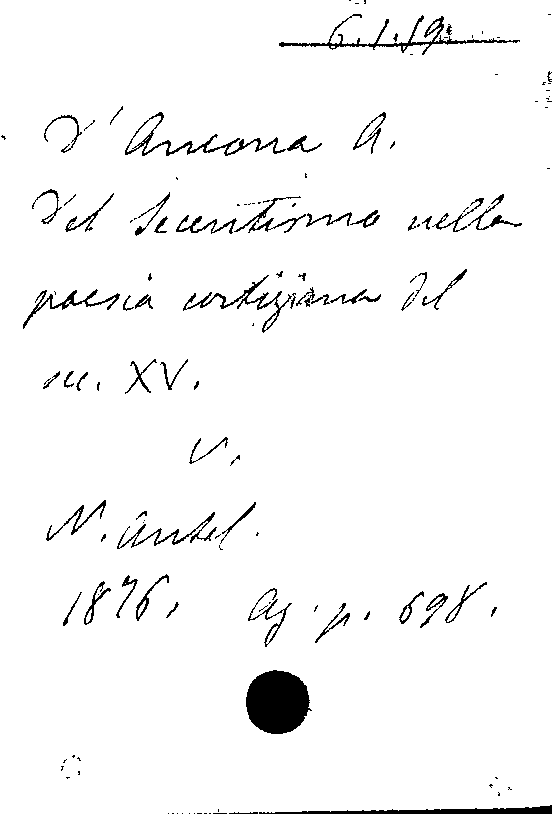 6.1.19.
D'Ancona A.
Del Secentismo nella
poesia cortigiana del
sec. XV.
v.
N. Antol.
1876. Ag. p. 698.